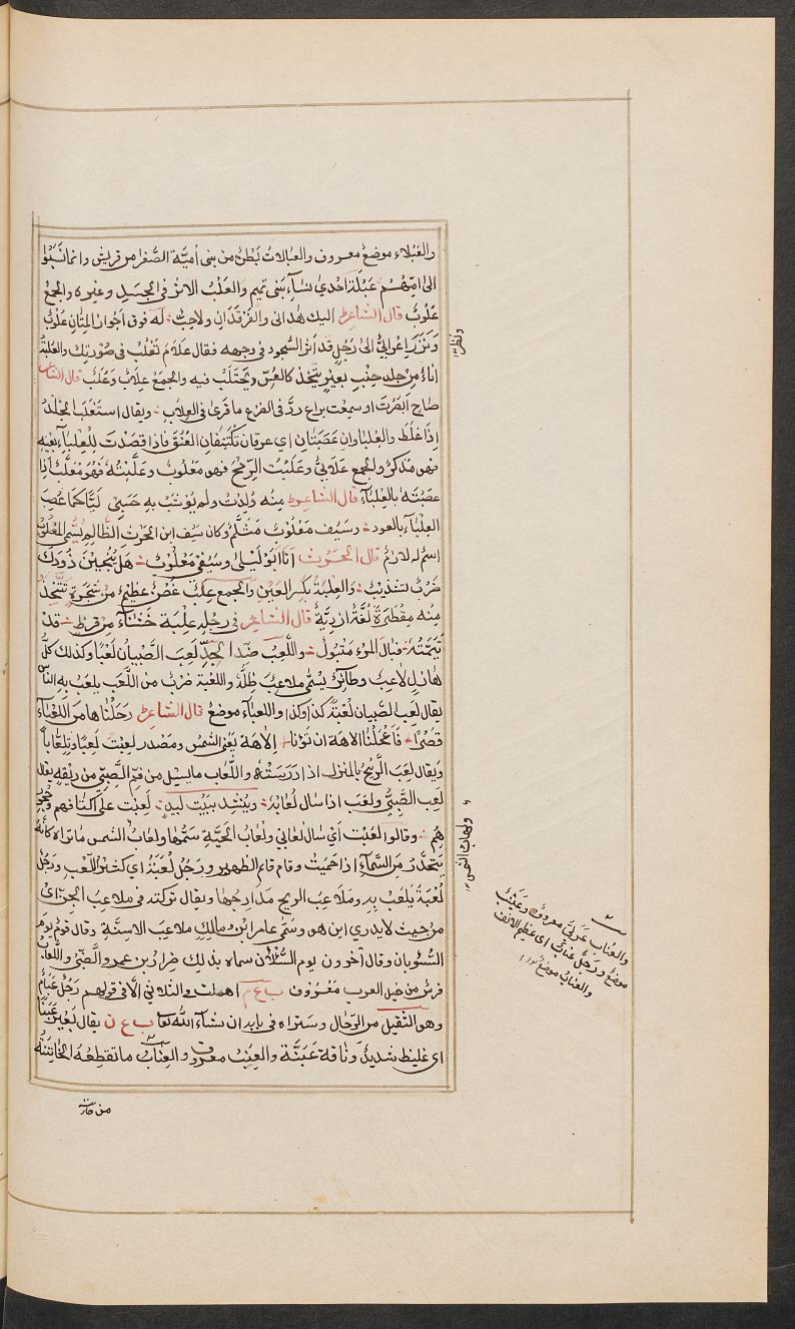 والعَبْلاء موضع معروف والعبالات بَطْن من بنى أميّة الصُّغرا من قريش وانما نُسبوا
الى امّهم عَبْلة احدى نساء بنى تميم والعَلْب الاثر فى الجسد وغيره والجمع
عُلوب قال الشاعر اليك هدانى والفرقدان ولاحب له فوق اجواز المتان عُلوب
ونظر اعرابىّ الى رجل قد اثّر السجود فى وجهه فقال علام تعْلب فى صورتك والعُلبة
اناء من جلد جنب بعير يتّخذ كالعُسّ ويحتلب فيه والجمع علاب وعُلَب قال الشاعر
صاح ابصرت او سمعت براع ردّ فى الضرع ما قرى فى العلاب ويقال استعلب الجلد
اذا غلظ والعِلباوان عصبتان اى عرقان تكتنفان العُنق فاذا قصدت للعِلباء بعينه
فهو مذكر والجمع علابىّ وعلبت الرمح فهو معلوب وعلّبته فهو معلّب اذا
عصبته بالعلباء قال الشاعر منه وُلدت ولم يؤشب به حسبى ليّا كما عُصب
العلباء بالعود وسيف معلوب مثلّم وكان سيف ابن الحرث الظالم يُسمى المعلوب
اسم له لازم قال الحرث انا ابو ليلى وسيفى معلوب هل يُنجين ذودك
ضرب تشذيب والعِلبة بكسر العين والجمع عِلَب غُصن عظيم من شجرة تتّخذ
منه مِقطرة لغة ازديّة قال الشاعر فى رجله علبة خشناء من قرظ قد
تيّمته فبال المرء متبول واللّعب ضدّ الجدّ لعب الصبيان لعبا وكذلك كل
هازل لاعب وطائر يسمّى ملاعب ظلّه واللعبة ضرب من اللّعب يلعب به الناس
يقال لعب الصبيان لُعبة كذا وكذا واللعباء موضع قال الشاعر رحلناها من اللعباء
قصرا فاعجلنا الاهة ان تؤبا إلاهة يعنى الشمس ومصدر لعبت لعبا وتلعابا
ويقال لعب الريح بالمنزل اذا درسته واللّعاب ما يسيل من فم الصبىّ من ريقه يقال
لعب الصبىّ ولعب اذا سال لُعابه وينشد بيت لبيد لعبت على اكتافهم وحجور
هم وقالوا لعبت اى سال لعابى ولُعاب الحيّة سمّها ولعاب الشمس ما تراه كأنه
يتحدّر من السماء اذا حميت وقام قائم الظهيرة ورجل لُعَبة اى كثير اللّعب ورجل
لُعْبة يلعب به وملاعب الريح مدارجها ويقال تركته فى ملاعب الجن اى
من حيث لا يدرى اين هو وسُمّى عامر ابن مالك ملاعب الاسنّة وقال قوم يوم
السوبان وقال آخرون يوم السلان سماه بذلك ضرار بن عمرو الضبّى واللعاب
فرس من خيل العرب معروف ب ع م اهملت والثلاثى الّا فى قولهم رجل عَبام
وهو الثقيل من الرجال وستراه فى بابه ان شاء الله تعا ب ع ن يقال بعير عَبَنّا
اى غليظ شديد وناقة عَبَنّة والعِنب معروف والعِناب ما تقطعه الخاتنة
من
ونظر
ولعاب الشمس
والعُناب عربىّ معروف وعُنَبَب
موضع ورجل عُناب اى عظيم الانف
والعناب موضع